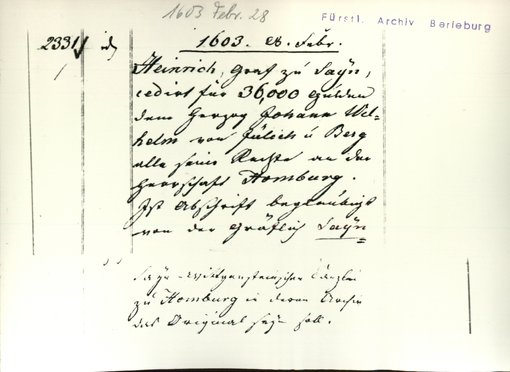 1603 Febr. 28
Fürstl. Archiv Berleburg
2331
1603. 28. Febr.
Heinrich, Graf zu Sayn,
cedirt für 36,000 Gulden
dem Herzog Johann Wil=
helm von Jülich u Berg
alle seine Rechte an der
Herrschaft Homburg.
Ist Abschrift beglaubigt
von der Gräflich Sayn
Sayn-Wittgensteinischen Canzlei
zu Homburg in deren Archiv
das Original seyn soll.